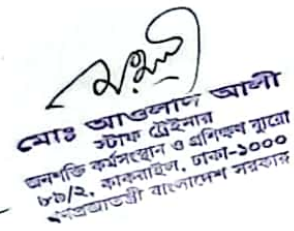 মোঃ আওলাদ আলী
স্টাফ ট্রেইনার
জনশক্তি কর্মসংস্থান ও প্রশিক্ষণ ব্যুরো
৮৯/২, কাকরাইল, ঢাকা-১০০০
গণপ্রজাতন্ত্রী বাংলাদেশ সরকার